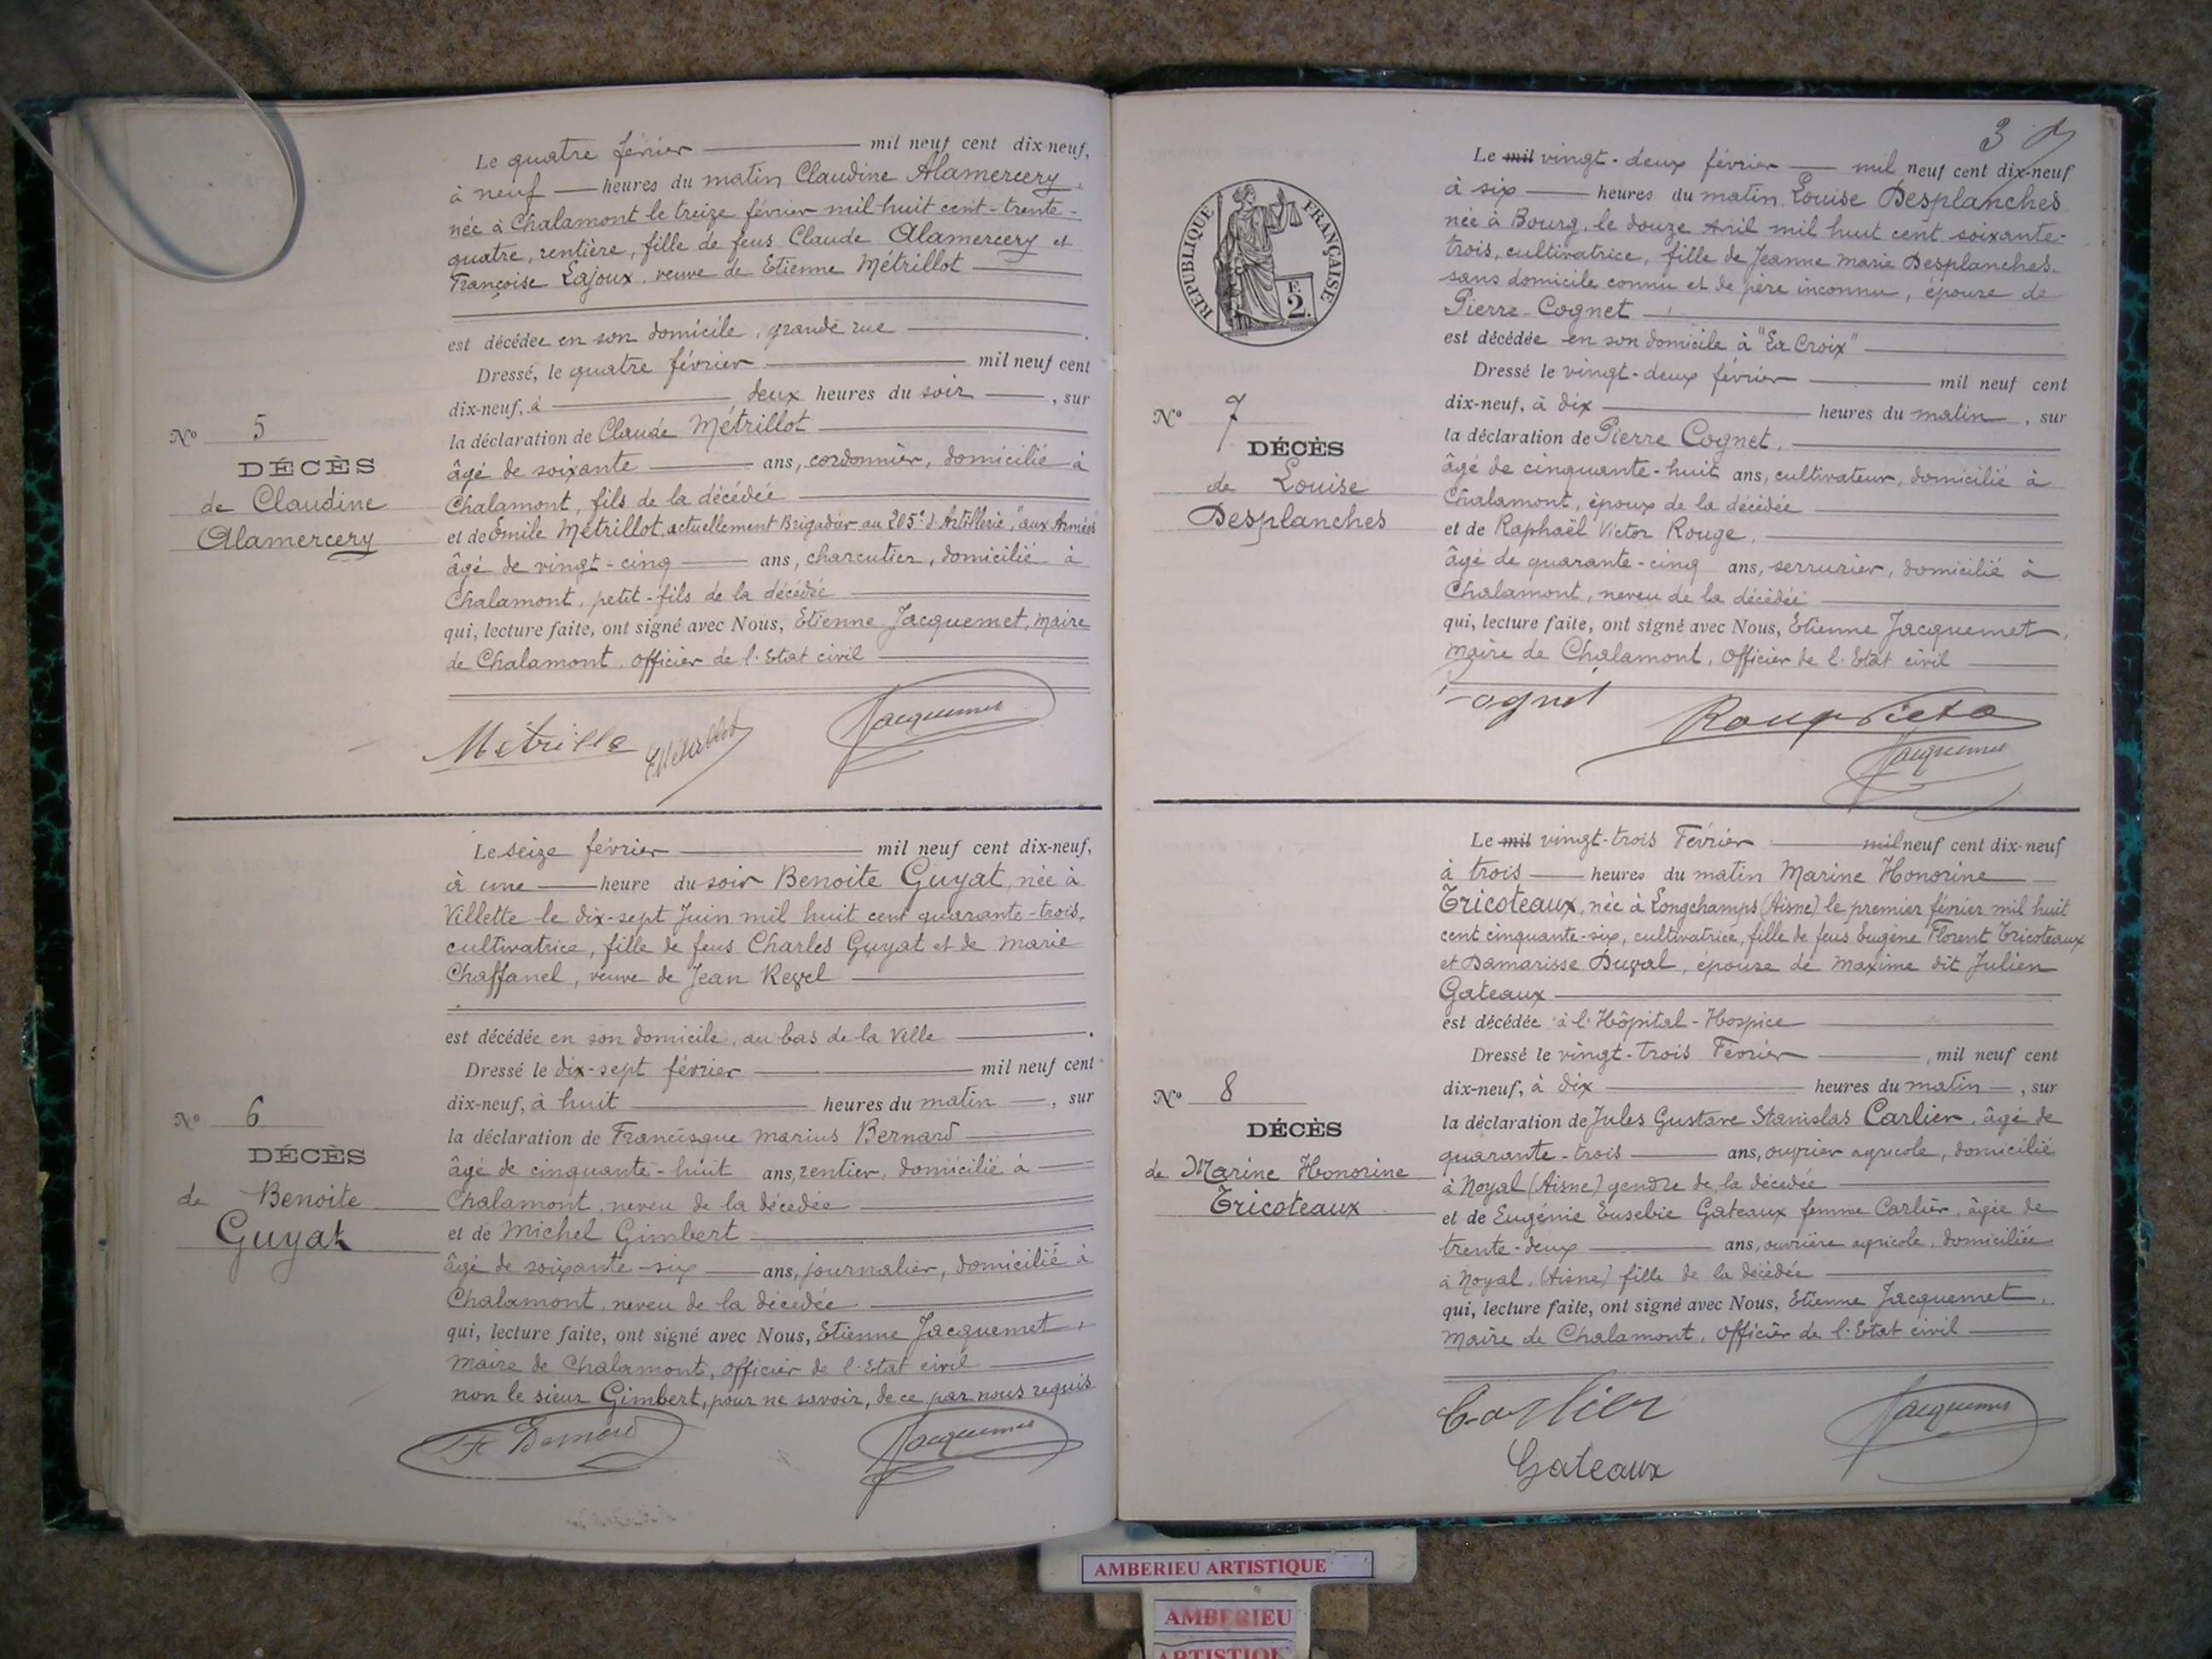 Le quatre février mil neuf cent dix-neuf,
à neuf heures du matin Claudine Alamercery,
née à Chalamont le treize février mil huit cent-trente-
quatre, rentière, fille de feus Claude Alamercery et
Françoise Lajoux, veuve de Etienne Métrillot
est décédée en son domicile, grande rue
Dressé, le quatre février mil neuf cent
dix-neuf, à deux heures du soir, sur
la déclaration de Claude Métrillot
âgé de soixante ans, cordonnier, domicilié à
Chalamont, fils de la décédée
et de Emile Métrillot, actuellement Brigadier au 205e d'Artillerie, "aux Armées"
âgé de vingt-cinq ans, charcutier, domicilié à
Chalamont, petit-fils de la décédée
qui, lecture faite, ont signé avec Nous, Etienne Jacquemet, maire
de Chalamont, officier de l'Etat civil
No 5
DÉCÈS
de Claudine
Alamercery
Jacquemet
Le seize février mil neuf cent dix-neuf,
à une heure du soir Benoite Guyat, née à
Villette le dix-sept Juin mil huit cent quarante-trois,
cultivatrice, fille de feus Charles Guyat et de marie
Chaffanel, veuve de Jean Revel
est décédée en son domicile, au bas de la Ville.
Dressé le dix-sept février mil neuf cent
dix-neuf, à huit heures du matin, sur
la déclaration de Francisque marius Bernard
âgé de cinquante-huit ans, rentier, domicilié à
Chalamont, neveu de la décédée
et de Michel Gimbert
âgé de soixante-six ans, journalier, domicilié à
Chalamont, neveu de la décédée
qui, lecture faite, ont signé avec Nous, Etienne Jacquemet,
maire de Chalamont, officier de l'Etat civil
non le sieur Gimbert, pour ne savoir, de ce par nous requis
No 6
DÉCÈS
de Benoite
Guyat
Bernard
Jacquemet
3
Le mil vingt-deux février mil neuf cent dix-neuf
à six heures du matin Louise Desplanches
née à Bourg, le douze Avril mil huit cent soixante-
trois, cultivatrice, fille de Jeanne Marie Desplanches
sans domicile connu et de père inconnu, épouse de
Pierre Cognet
est décédée en son domicile à "La Croix"
Dressé le vingt-deux février mil neuf cent
dix-neuf, à dix heures du matin, sur
la déclaration de Pierre Cognet,
âgé de cinquante-huit ans, cultivateur, domicilié à
Chalamont, époux de la décédée
et de Raphaël Victor Rouge,
âgé de quarante-cinq ans, serrurier, domicilié à
Chalamont, neveu de la décédée
qui, lecture faite, ont signé avec Nous, Etienne Jacquemet,
maire de Chalamont, officier de l'Etat civil
REPUBLIQUE FRANÇAISE
F.
2.
No 7
DÉCÈS
de Louise
Desplanches
Cognet
Jacquemet
Le mil vingt-trois Février mil neuf cent dix-neuf
à trois heures du matin Marine Honorine
Tricoteaux, née à Longchamps (Aisne) le premier février mil huit
cent cinquante-six, cultivatrice, fille de feus Eugène Florent Tricoteaux
et Damarisse Duval, épouse de Maxime dit Julien
Gateaux
est décédée à l'Hôpital-Hospice
Dressé le vingt-trois Février, mil neuf cent
dix-neuf, à dix heures du matin, sur
la déclaration de Jules Gustave Stanislas Carlier, âgé de
quarante-trois ans, ouvrier agricole, domicilié
à Noyal (Aisne) gendre de la décédée
et de Eugénie Eusebie Gateaux femme Carlier, âgée de
trente-deux ans, ouvrière agricole, domiciliée
à Noyal, (Aisne) fille de la décédée
qui, lecture faite, ont signé avec Nous, Etienne Jacquemet,
maire de Chalamont, officier de l'Etat civil
No 8
DÉCÈS
de Marine Honorine
Tricoteaux
Carlier
Jacquemet
Gateaux
AMBERIEU ARTISTIQUE
AMBERIEU